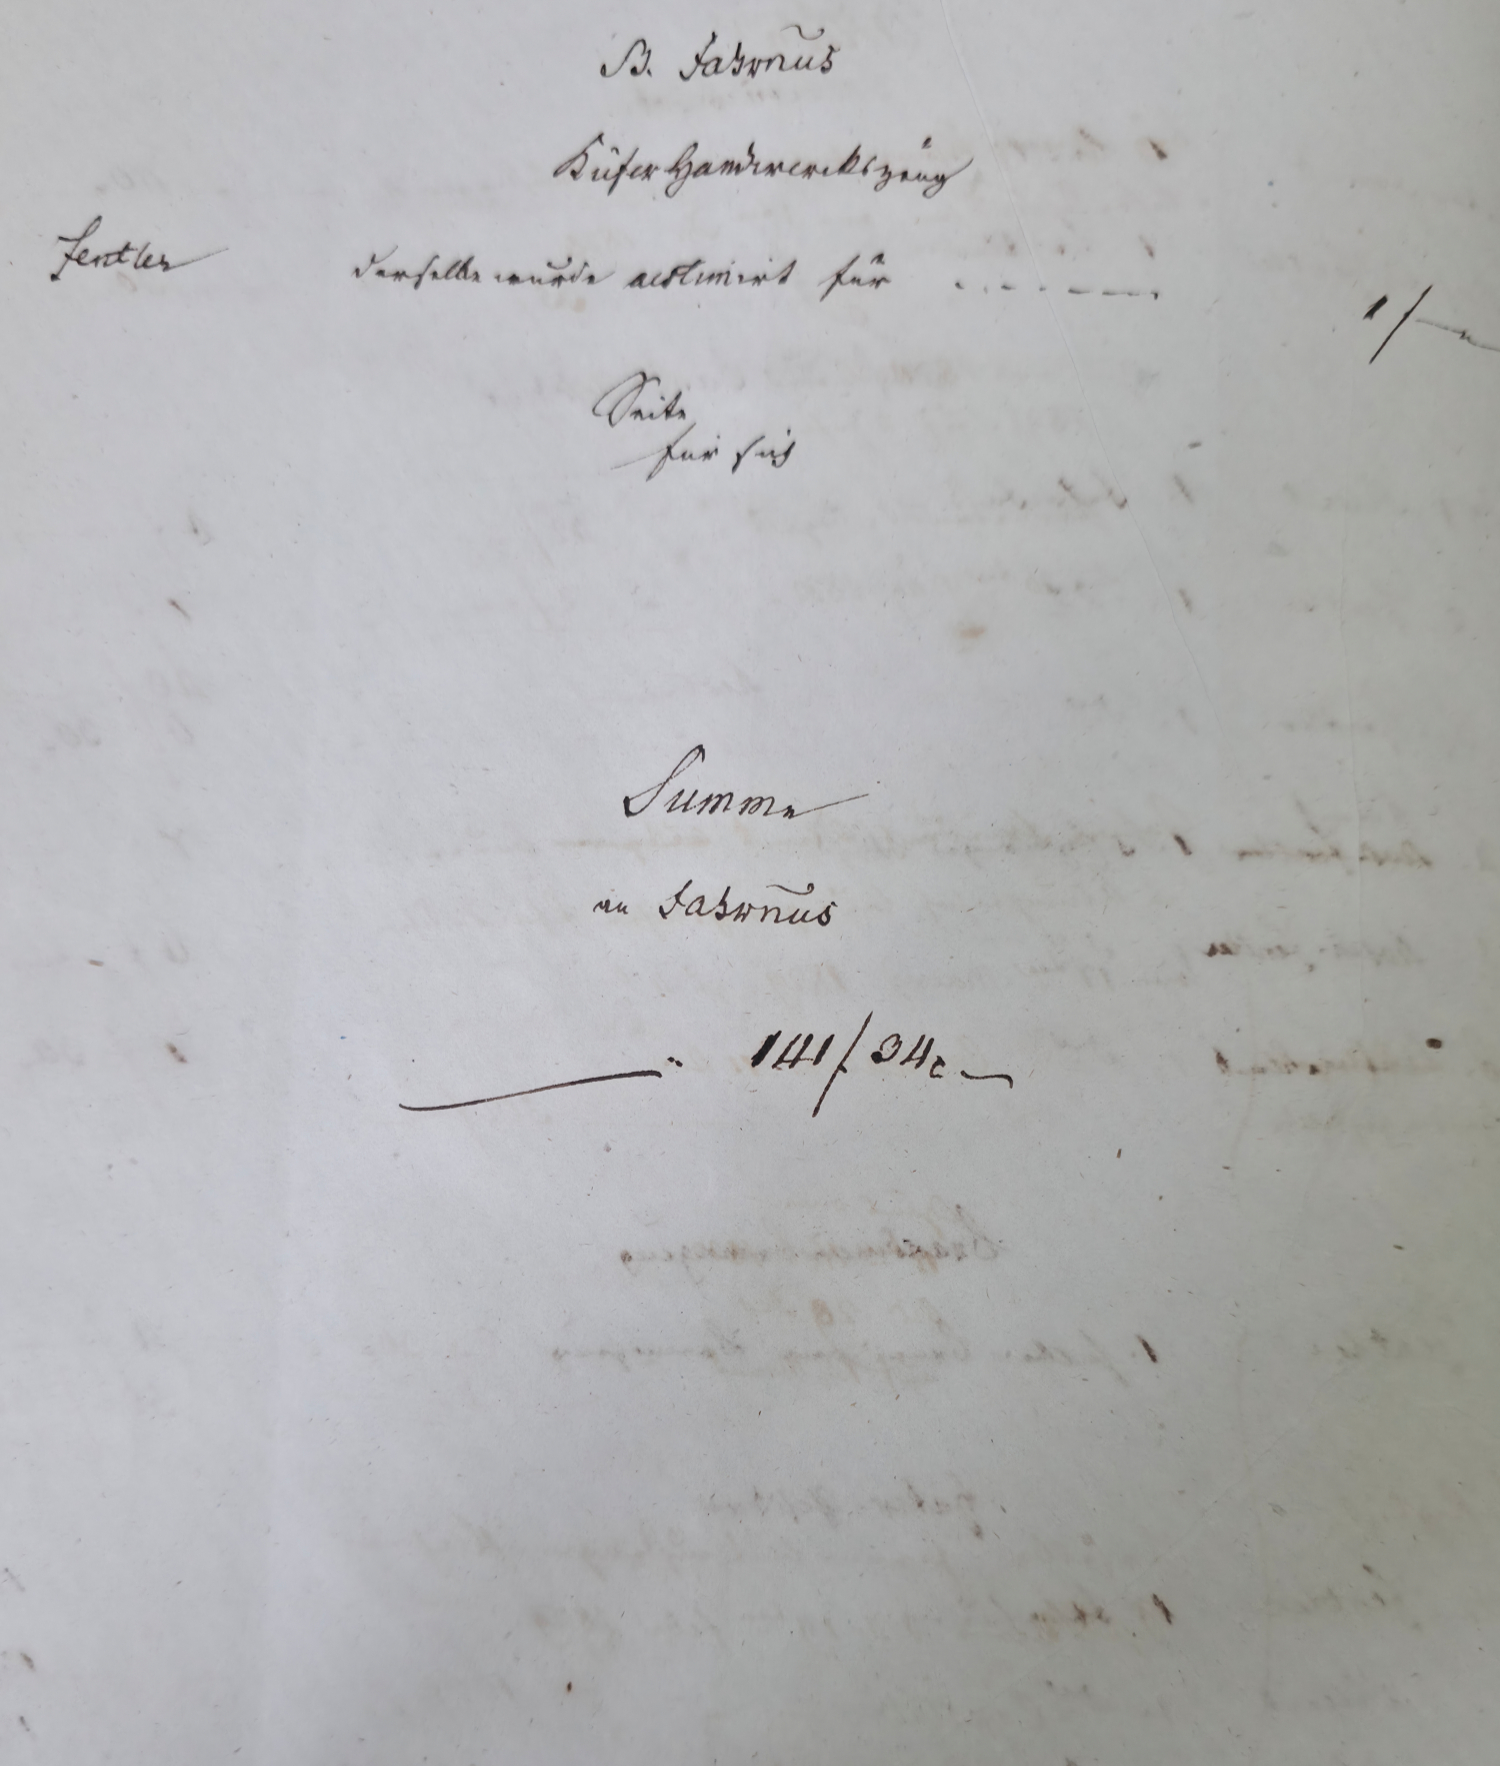 B. Fahrnus
Küfer Handwerckszeug
derselbe wurde aestimirt für
1 f
Seite
für sich
Summe
an Fahrnus
141 f 34 c